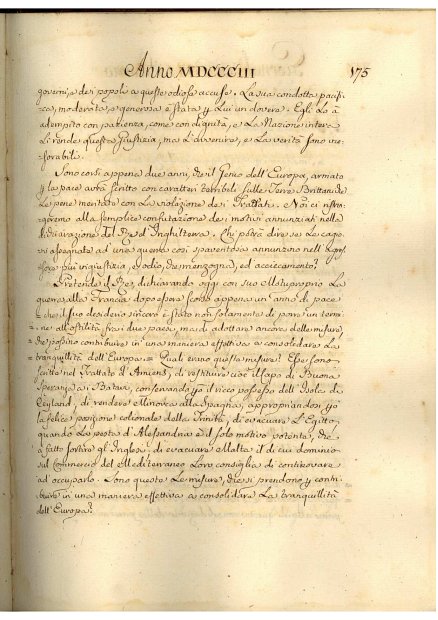 Anno MDCCCIII 175
governi, e dei popoli a queste odiose accuse. La sua condotta pacifi-
ca, moderata, e generosa è stata p lui un dovere. Egli Lo à
adempito con pazienza, come con dignità, e La Nazione intera
Li rende questa Giustizia, ma L'avvenire, e La verità sono ine-
sorabili.
Sono corsi appena due anni, che il Genio dell'Europa, armato
p la pace avrà scritto con caratteri terribili sulle Terre Brittaniche
Le pene meritate con La violazione dei Trattati. Noi ci
alla semplice confutazione dei motivi annunziati nella
Dichiarazione del Re d'Inghilterra. Chi potrà dire se Le cagio-
ni assegnate ad una guerra così spaventosa annunzino nell'Aggres-
sore più ingiustizia, e odio, che menzogna, ed acciecamento?
Pretende il Re, dichiarando oggi con suo Motuproprio La
guerra alla Francia dopo esser scorso appena un'anno di pace
= che il suo desiderio sincero è stato non solamente di porre un termi-
= ne alle ostilità fra i due paesi, ma di adottare ancora delle misure,
che possino contribuire in una maniera effettiva a consolidare La
tranquillità dell'Europa = Quali erano queste misure? Esse sono
scritte nel Trattato d'Amiens, di restituire cioè il Capo di Buona
Speranza ai Batavi, conservando p se il ricco possesso dell'Isola di
Ceyland, di rendere Minorca alla Spagna, appropriandosi p se
la felice posizione coloniale della Trinità, di evacuare L'Egitto,
quando La peste d'Alessandria è il solo motivo potente, che
à fatto sortire gl'Inglesi, di evacuare Malta il di cui dominio
sul Commercio del Mediterraneo Loro consiglia di continovare
ad occuparlo. Sono queste Le misure, che si prendono p contri-
buire in una maniera effettiva a consolidare La tranquillità
dell'Europa?